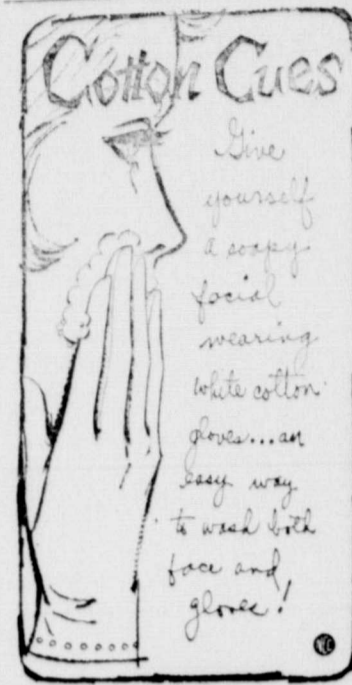 Cotton Cues
Give
yourself
a soapy
facial
wearing
white cotton
gloves...an
easy way
to wash both
face and
gloves!